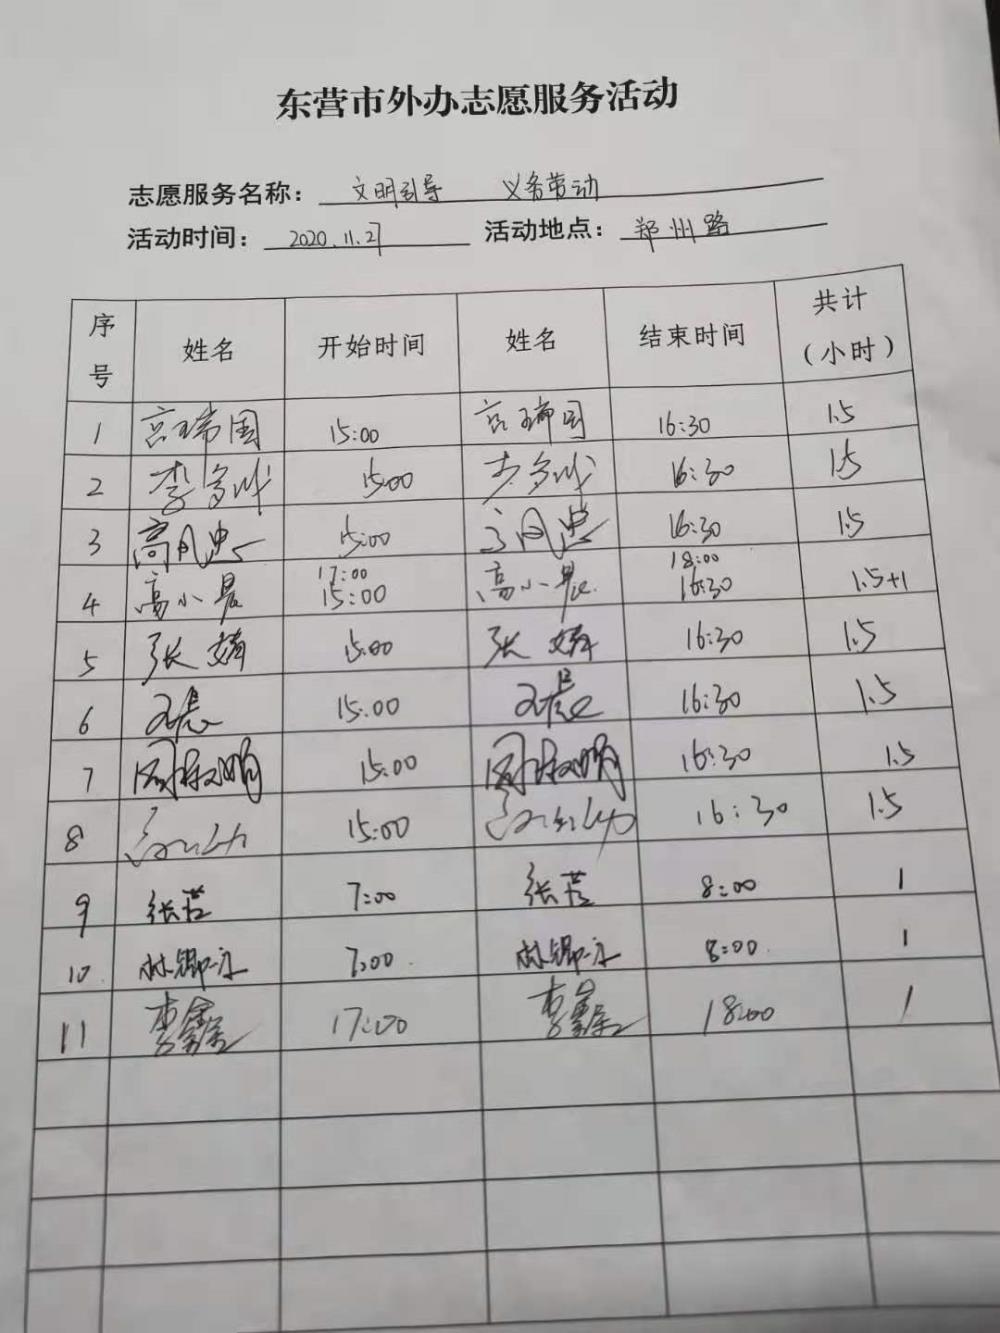 东营市外办志愿服务活动
志愿服务名称： 文明引导 义务劳动
活动时间： 2020.11.27 活动地点： 郑州路
序号 姓名 开始时间 姓名 结束时间 共计（小时）
1 宫瑞国 15:00 宫瑞国 16:30 1.5
2 李 15:00 李 16:30 1.5
3 高风 15:00 高风 16:30 1.5
4 高小晨 17:00 15:00 高小晨 18:00 16:30 1.5+1
5 张婧 15:00 张婧 16:30 1.5
6 15:00 16:30 1.5
7 15:00 16:30 1.5
8 15:00 16:30 1.5
9 张芸 7:00 张芸 8:00 1
10 林 7:00 林 8:00 1
11 李鑫 17:00 李鑫 18:00 1